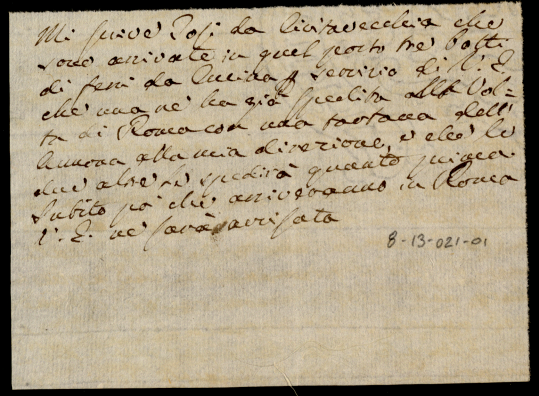 Mi scrive Posi da Civitavecchia che
sono arrivate in quel porto tre botti
di ferri da cucina p servizio di V. E.
che una ne ha già spedita alla vol=
ta di Roma con una tartana dell'
Annona alla mia direzione, e che le
due altre le spedirà quanto prima.
Subito poi che arriveranno in Roma
V. E. ne sarà avvisata
8-13-021-01